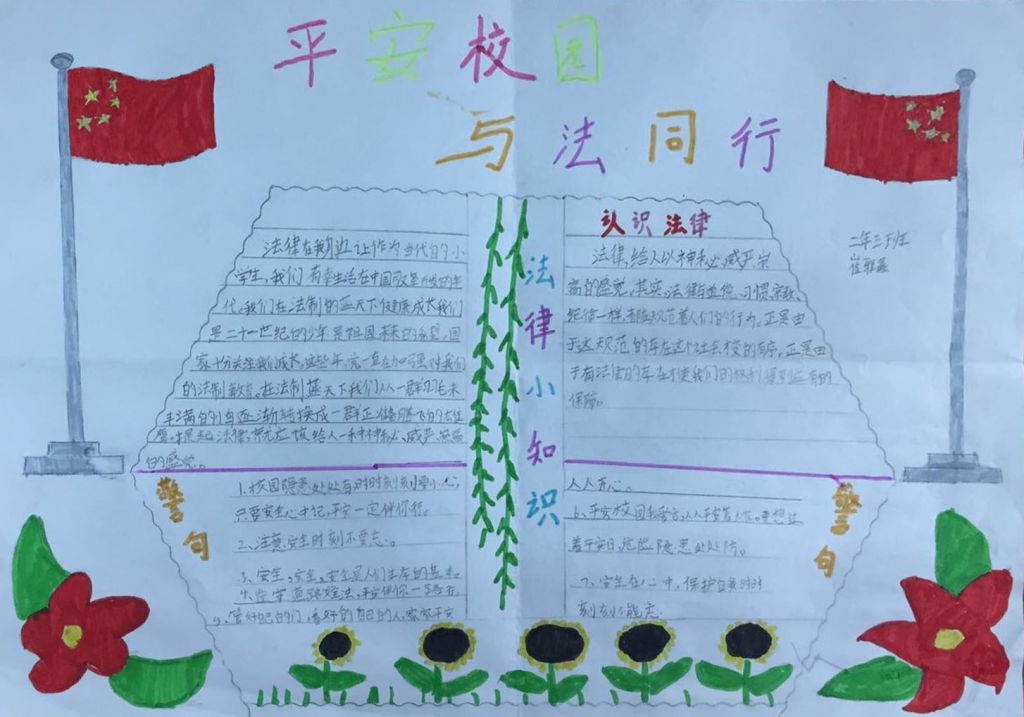 平安校园
与法同行
二年三班
法律小知识
法律在我们身边让作为当代的小
学生,我们有幸生活在中国改革开放的年
代,我们在法制的蓝天下健康成长我们
是二十一世纪的少年是祖国未来的希望,国
家十分关注我们成长,这些年,党一直在加强对我们
的法制教育,在法制蓝天下我们从一群羽毛未
丰满的小鸟逐渐转换成一群正准备腾飞的大雄
鹰,提起法律,就应该给人一种神秘、威严、崇高
的感觉。
认识法律
法律,给人以神秘、威严、崇
高的感觉,其实,法律与道德、习惯、宗教、
纪律一样都是规范着人们的行为。正是由
于这规范的存在这个社会
正是由
于有法律的存在才使我们的权利得到应有的
保障。
警句
1.校园隐患处处有时时刻刻要小心,
只要安全心中记,平安一定伴你行。
2、注意安全时刻不要忘。
3、安全,安全,安全是人们生存的基本。
5、管好自己的门,看好自己的人,家家平安
人人开心。
警句
7、安全在心中,保护自身时时
刻刻不能忘